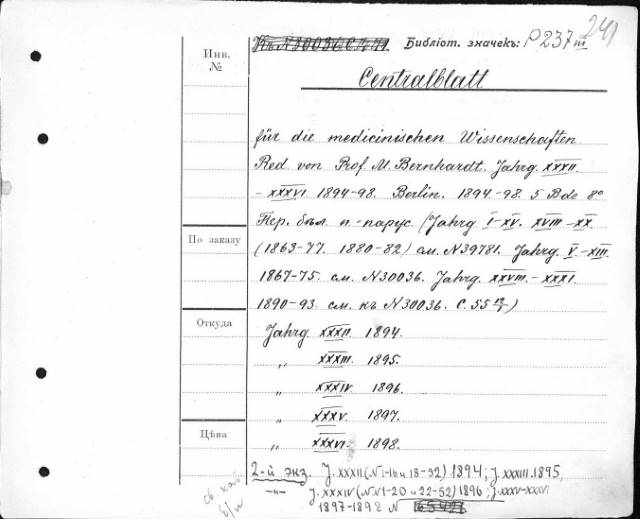 241
Инв. №
Къ N 30036. С.
Библіот. значекъ: P 237 III
Centralblatt
für die medicinischen Wissenschaften
Red von Prof. M. Bernhardt. Jahrg. XXXII
– XXXVI 1894–98. Berlin. 1894–98. 5 Bde 8°
Пер. бѣл. п-парус (Jahrg I–XV. XVIII–XX
По заказу
(1863–77. 1880–82) см. N 39781. Jahrg. V–XIII
1867–75. см. N 30036. Jahrg. XXVIII–XXXI.
1890–93. см. къ N 30036. С. 55)
Откуда
Jahrg XXXII 1894.
„ XXXIII. 1895.
„ XXXIV. 1896.
„ XXXV. 1897.
Цѣна
„ XXXVI. 1898.
2-й экз. J. XXXII (N 1–16 и 18–52) 1894; J. XXXIII 1895,
–„– J. XXXIV (N.N 1–20 и 22–52) 1896; J. XXXV–XXXVI
1897–1898 N